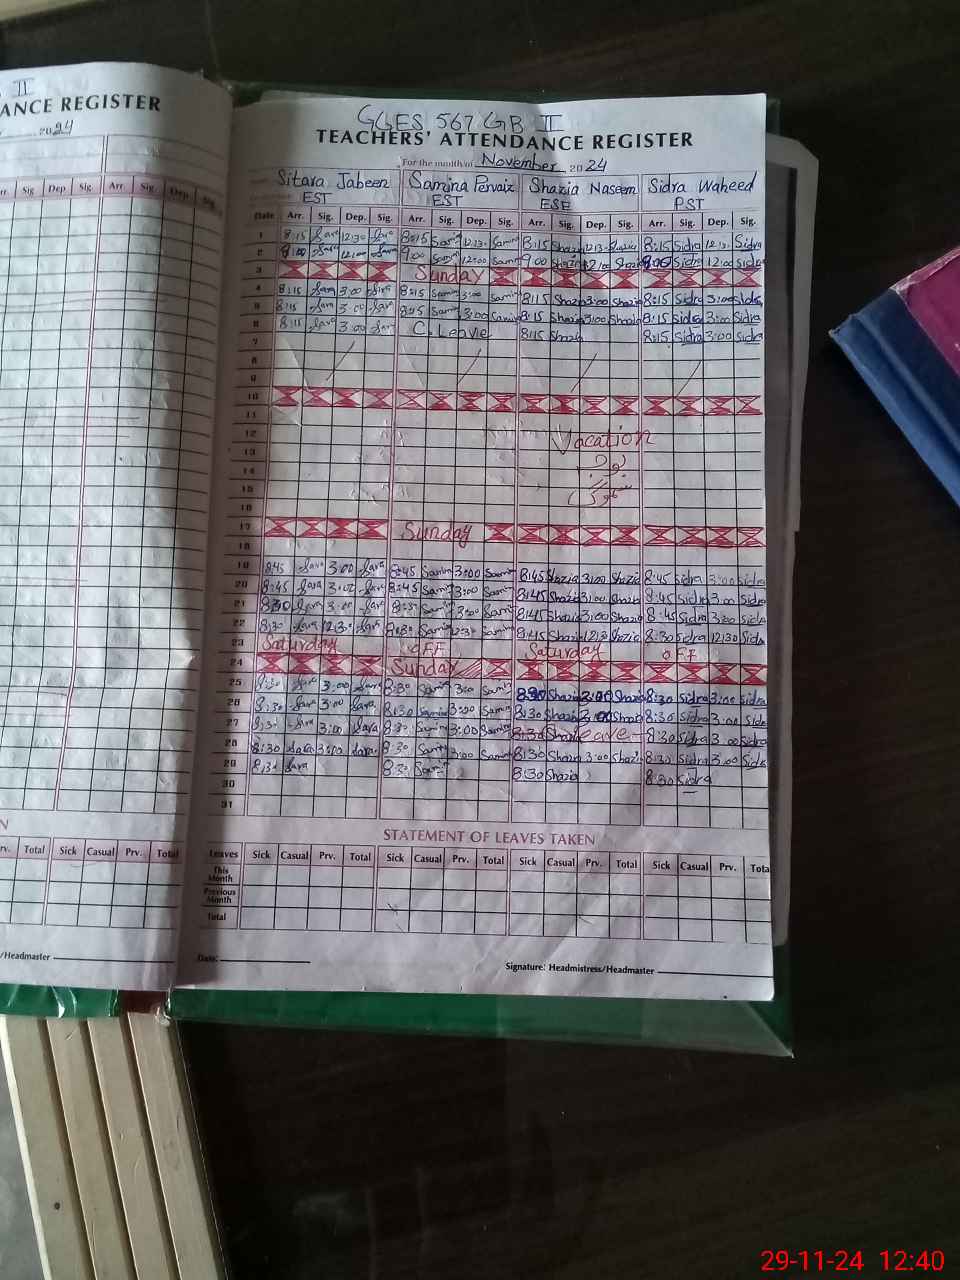 II
DANCE REGISTER
2024
Arr. Sig. Dep. Sig. Arr. Sig. Dep. Sig.
GGES 567 GB II
TEACHERS' ATTENDANCE REGISTER
For the month of November 2024
Sitara Jabeen Samina Pervaiz Shazia Naseem Sidra Waheed
EST EST ESE PST
Date Arr. Sig. Dep. Sig. Arr. Sig. Dep. Sig. Arr. Sig. Dep. Sig. Arr. Sig. Dep. Sig.
1 8:15 Sara 12:30 Sara 8:15 Samin 12:3 Samin 8:15 Shazia 12:3 Shazia 8:15 Sidra 12:3 Sidra
2 9:00 Sara 12:00 Sara 9:00 Sami 12:00 Samin 9:00 Shazia 12:00 Shazia 9:00 Sidra 12:00 Sidra
3 Sunday
4 8:15 Sara 3:00 Sara 8:15 Samin 3:00 Samin 8:15 Shazia 3:00 Shazia 8:15 Sidra 3:00 Sidra
5 8:15 Sara 3:00 Sara 8:15 Samin 3:00 Samin 8:15 Shazia 3:00 Shazia 8:15 Sidra 3:00 Sidra
6 8:15 Sara 3:00 Sara C. Leave 8:15 Shazia 8:15 Sidra 3:00 Sidra
7
8
9
10
11
12 Vacation
13
14
15
16
17 Sunday
18
19 8:45 Sara 3:00 Sara 8:45 Samin 3:00 Samin 8:45 Shazia 3:00 Shazia 8:45 Sidra 3:00 Sidra
20 8:45 Sara 3:00 Sara 8:45 Samin 3:00 Samin 8:45 Shazia 3:00 Shazia 8:45 Sidra 3:00 Sidra
21 8:30 Sara 3:00 Sara 8:30 Samin 3:00 Samin 8:45 Shazia 3:00 Shazia 8:45 Sidra 3:00 Sidra
22 8:30 Sara 12:30 Sara 8:30 Samin 12:30 Samin 8:45 Shazia 12:30 Shazia 8:30 Sidra 12:30 Sidra
23 Saturday OFF Saturday OFF
24 Sunday
25 8:30 Sara 3:00 Sara 8:30 Samin 3:00 Samin 8:30 Shazia 3:00 Shazia 8:30 Sidra 3:00 Sidra
26 8:30 Sara 3:00 Sara 8:30 Samin 3:00 Samin 8:30 Shazia 3:00 Shazia 8:30 Sidra 3:00 Sidra
27 8:30 Sara 3:00 Sara 8:30 Samin 3:00 Samin 8:30 Shazia Leave 8:30 Sidra 3:00 Sidra
28 8:30 Sara 3:00 Sara 8:30 Samin 3:00 Samin 8:30 Shazia 3:00 Shazia 8:30 Sidra 3:00 Sidra
29 8:30 Sara 8:30 Samin 8:30 Shazia 8:30 Sidra
30
31
STATEMENT OF LEAVES TAKEN
Prv. Total Sick Casual Prv. Total
Leaves Sick Casual Prv. Total Sick Casual Prv. Total Sick Casual Prv. Total Sick Casual Prv. Tota
This Month
Previous Month
Total
/Headmaster
Date:
Signature: Headmistress/Headmaster
29-11-24 12:40